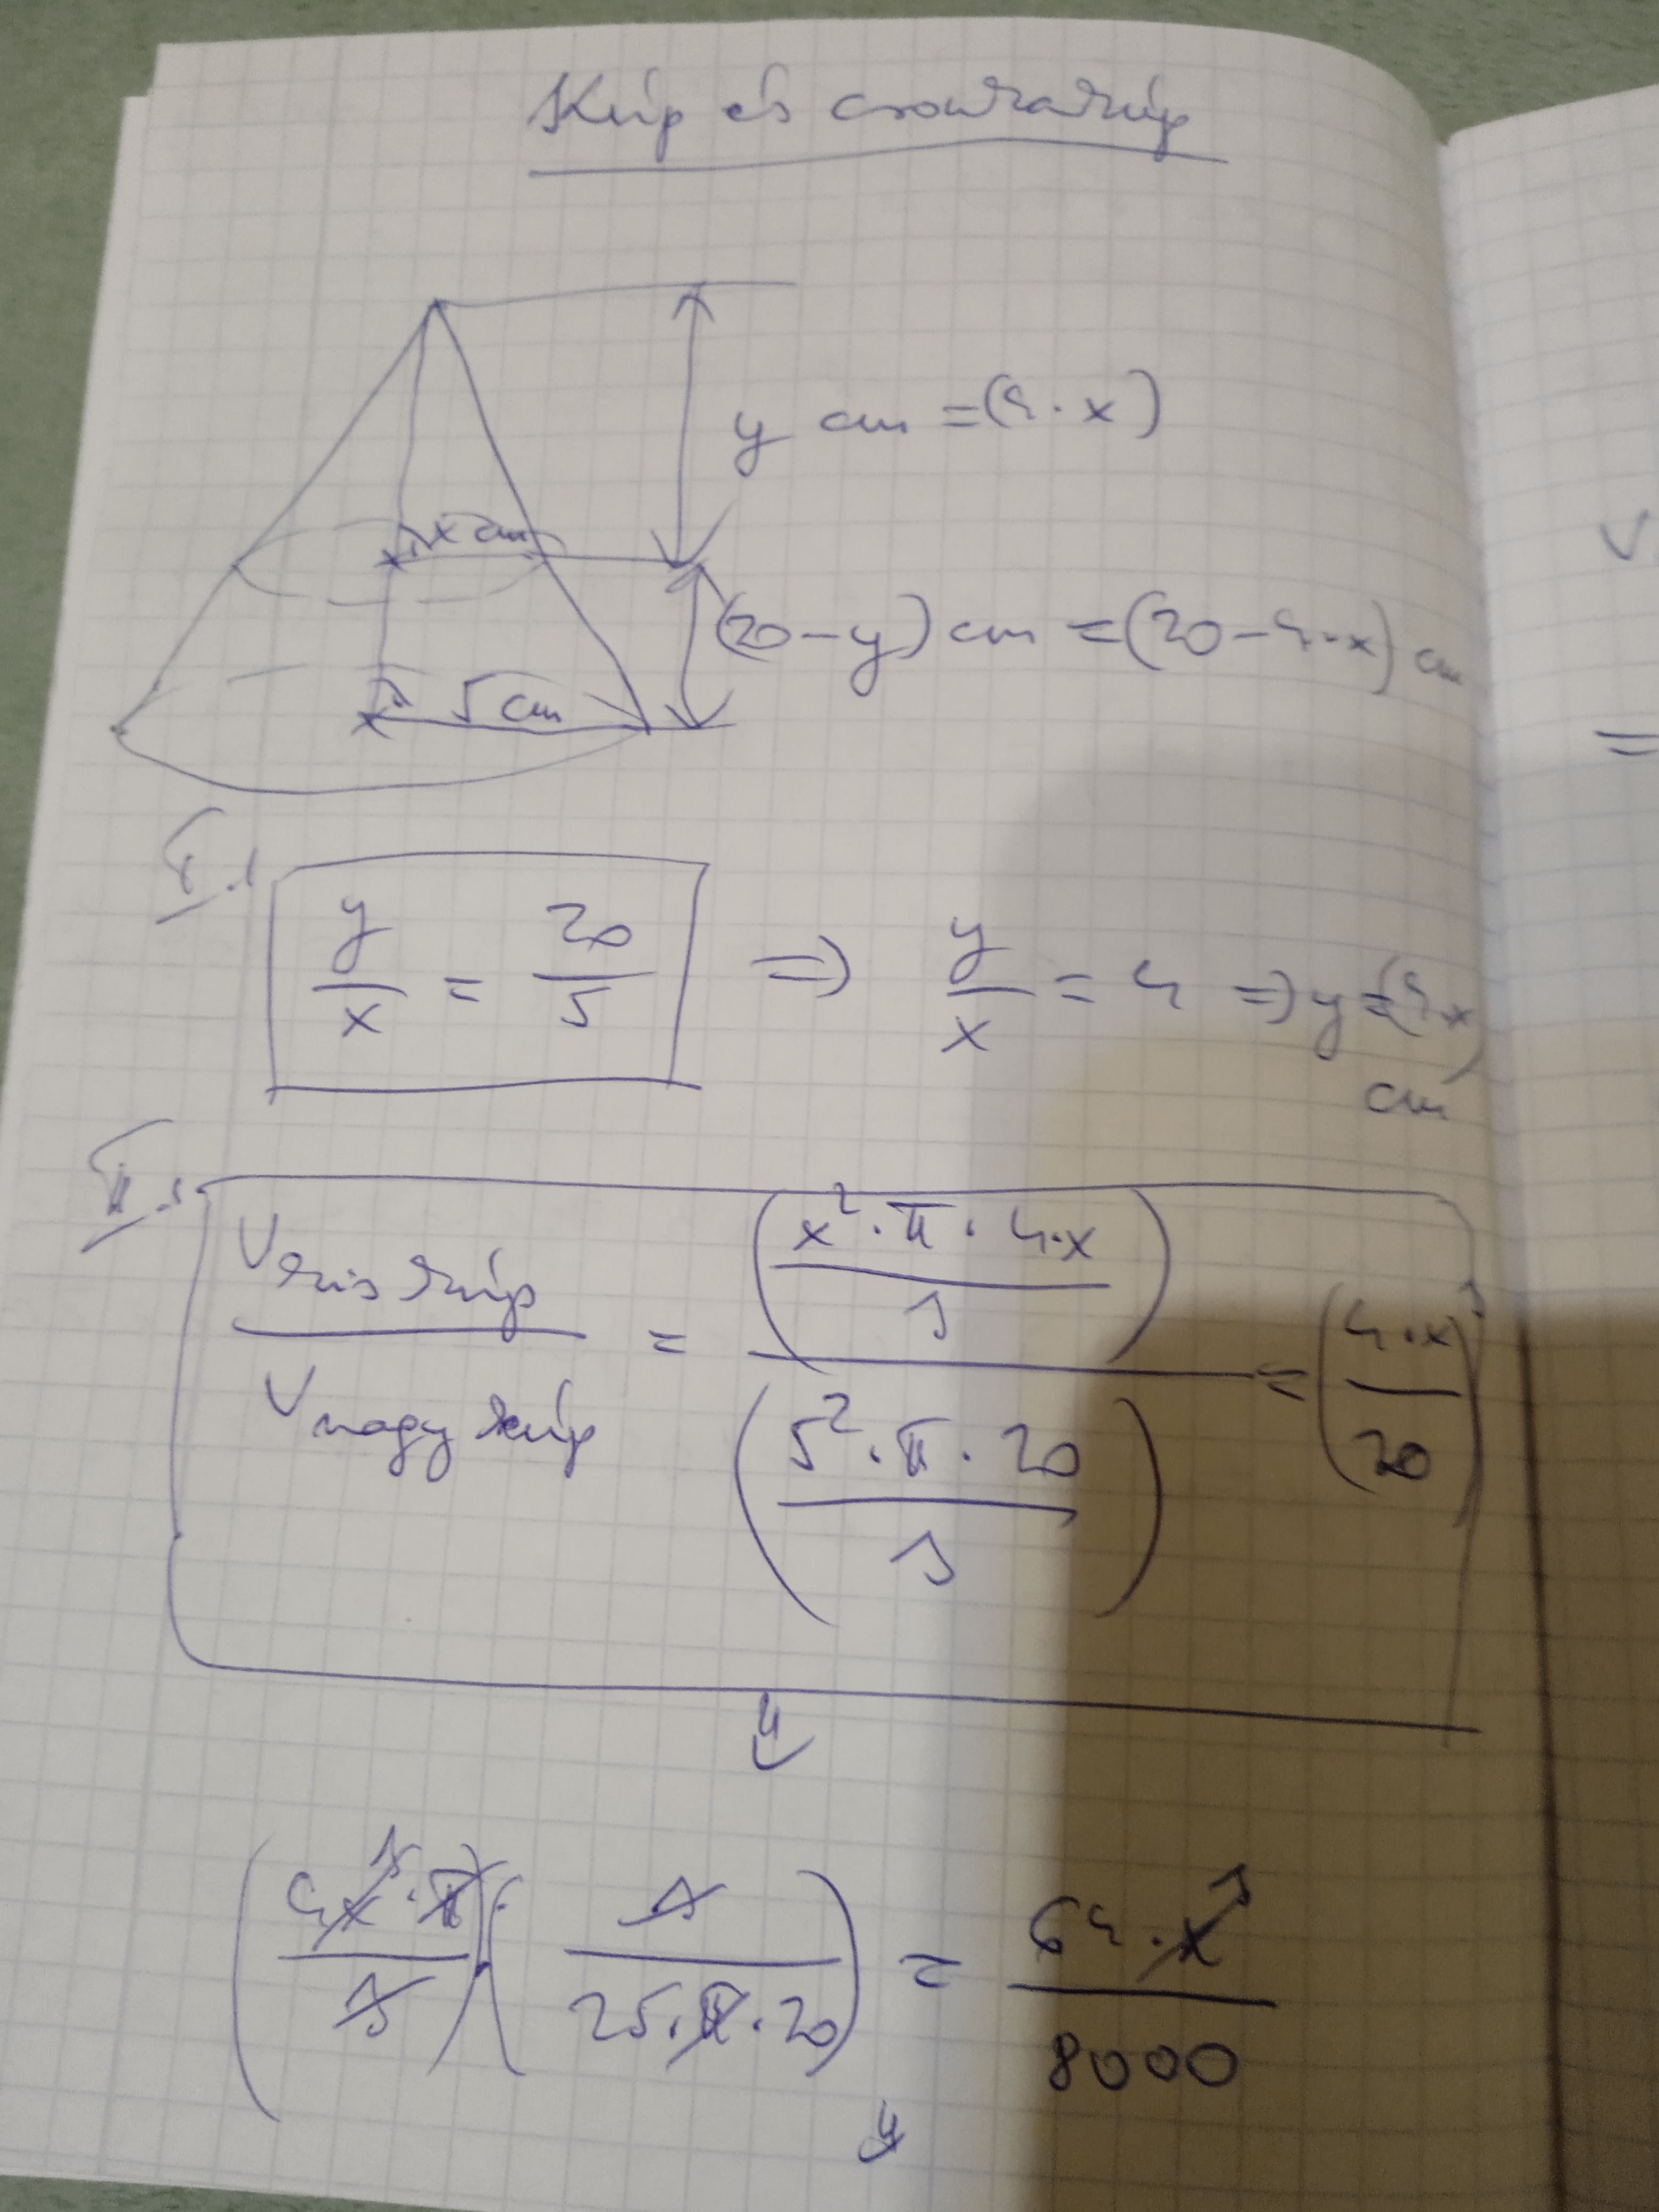 Kúp és csonkakúp
y cm = (4·x)
x cm
(20-y) cm = (20-4·x) cm
5 cm
I.
y/x = 20/5 => y/x = 4 => y = (4·x) cm
II.
V kis kúp / V nagy kúp = (x²·π·4·x / 3) / (5²·π·20 / 3) = (4·x / 20)³
(4x³·π / 3)·(3 / 25·π·20) = 64·x³ / 8000
V
=